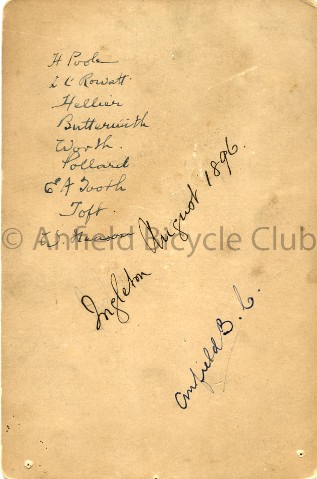 H Poole
L C Rowatt.
Hellier
Butterwith
Worth.
Pollard
E A Tooth
Toft.
© Anfield Bicycle Club
Ingleton August 1896.
Anfield B. C.